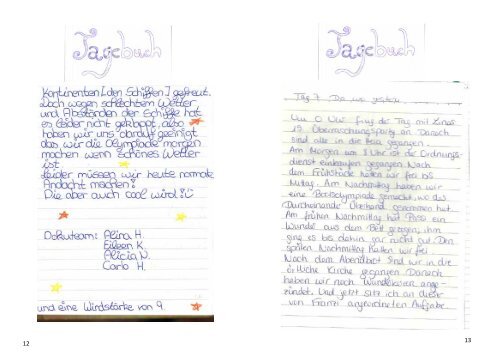 Tagebuch
Kontinenten [den Schiffen] gefreut.
Doch wegen schlechtem Wetter
und Abständen der Schiffe hat
es leider nicht geklappt, also
haben wir uns darauf geeinigt
das wir die Olympiade morgen
machen wenn Schönes Wetter
ist
Leider müssen wir heute normale
Andacht machen!
Die aber auch cool wird!
Dokuteam: Alira H.
Eileen K.
Alicia N.
Carlo H.
und eine Windstärke von 9
12
Tagebuch
Tag 7
Um 0 Uhr fing der Tag mit
15. Überraschungsparty an Danach
sind alle in die gegangen
Am Morgen um 1 Uhr ist die Ordnungs
dienst einkaufen gegangen Nach
dem Frühstück hatten wir frei bis
Mittag. Am Nachmittag haben wir
eine Bootsolympiade gemacht, wo das
Durcheinander Überhand genommen hat.
Am frühen Nachmittag hat
aus dem Bett gezogen, ihm
ging es bis dahin gar nicht gut. Den
späten Nachmittag hatten wir frei
Nach dem Abendbrot sind wir in die
örtliche Kirche gegangen Danach
haben wir noch Wunderkerzen ange-
zündet. Und jetzt sitz ich an dieser
von Franzi angeordneten Aufgabe
13